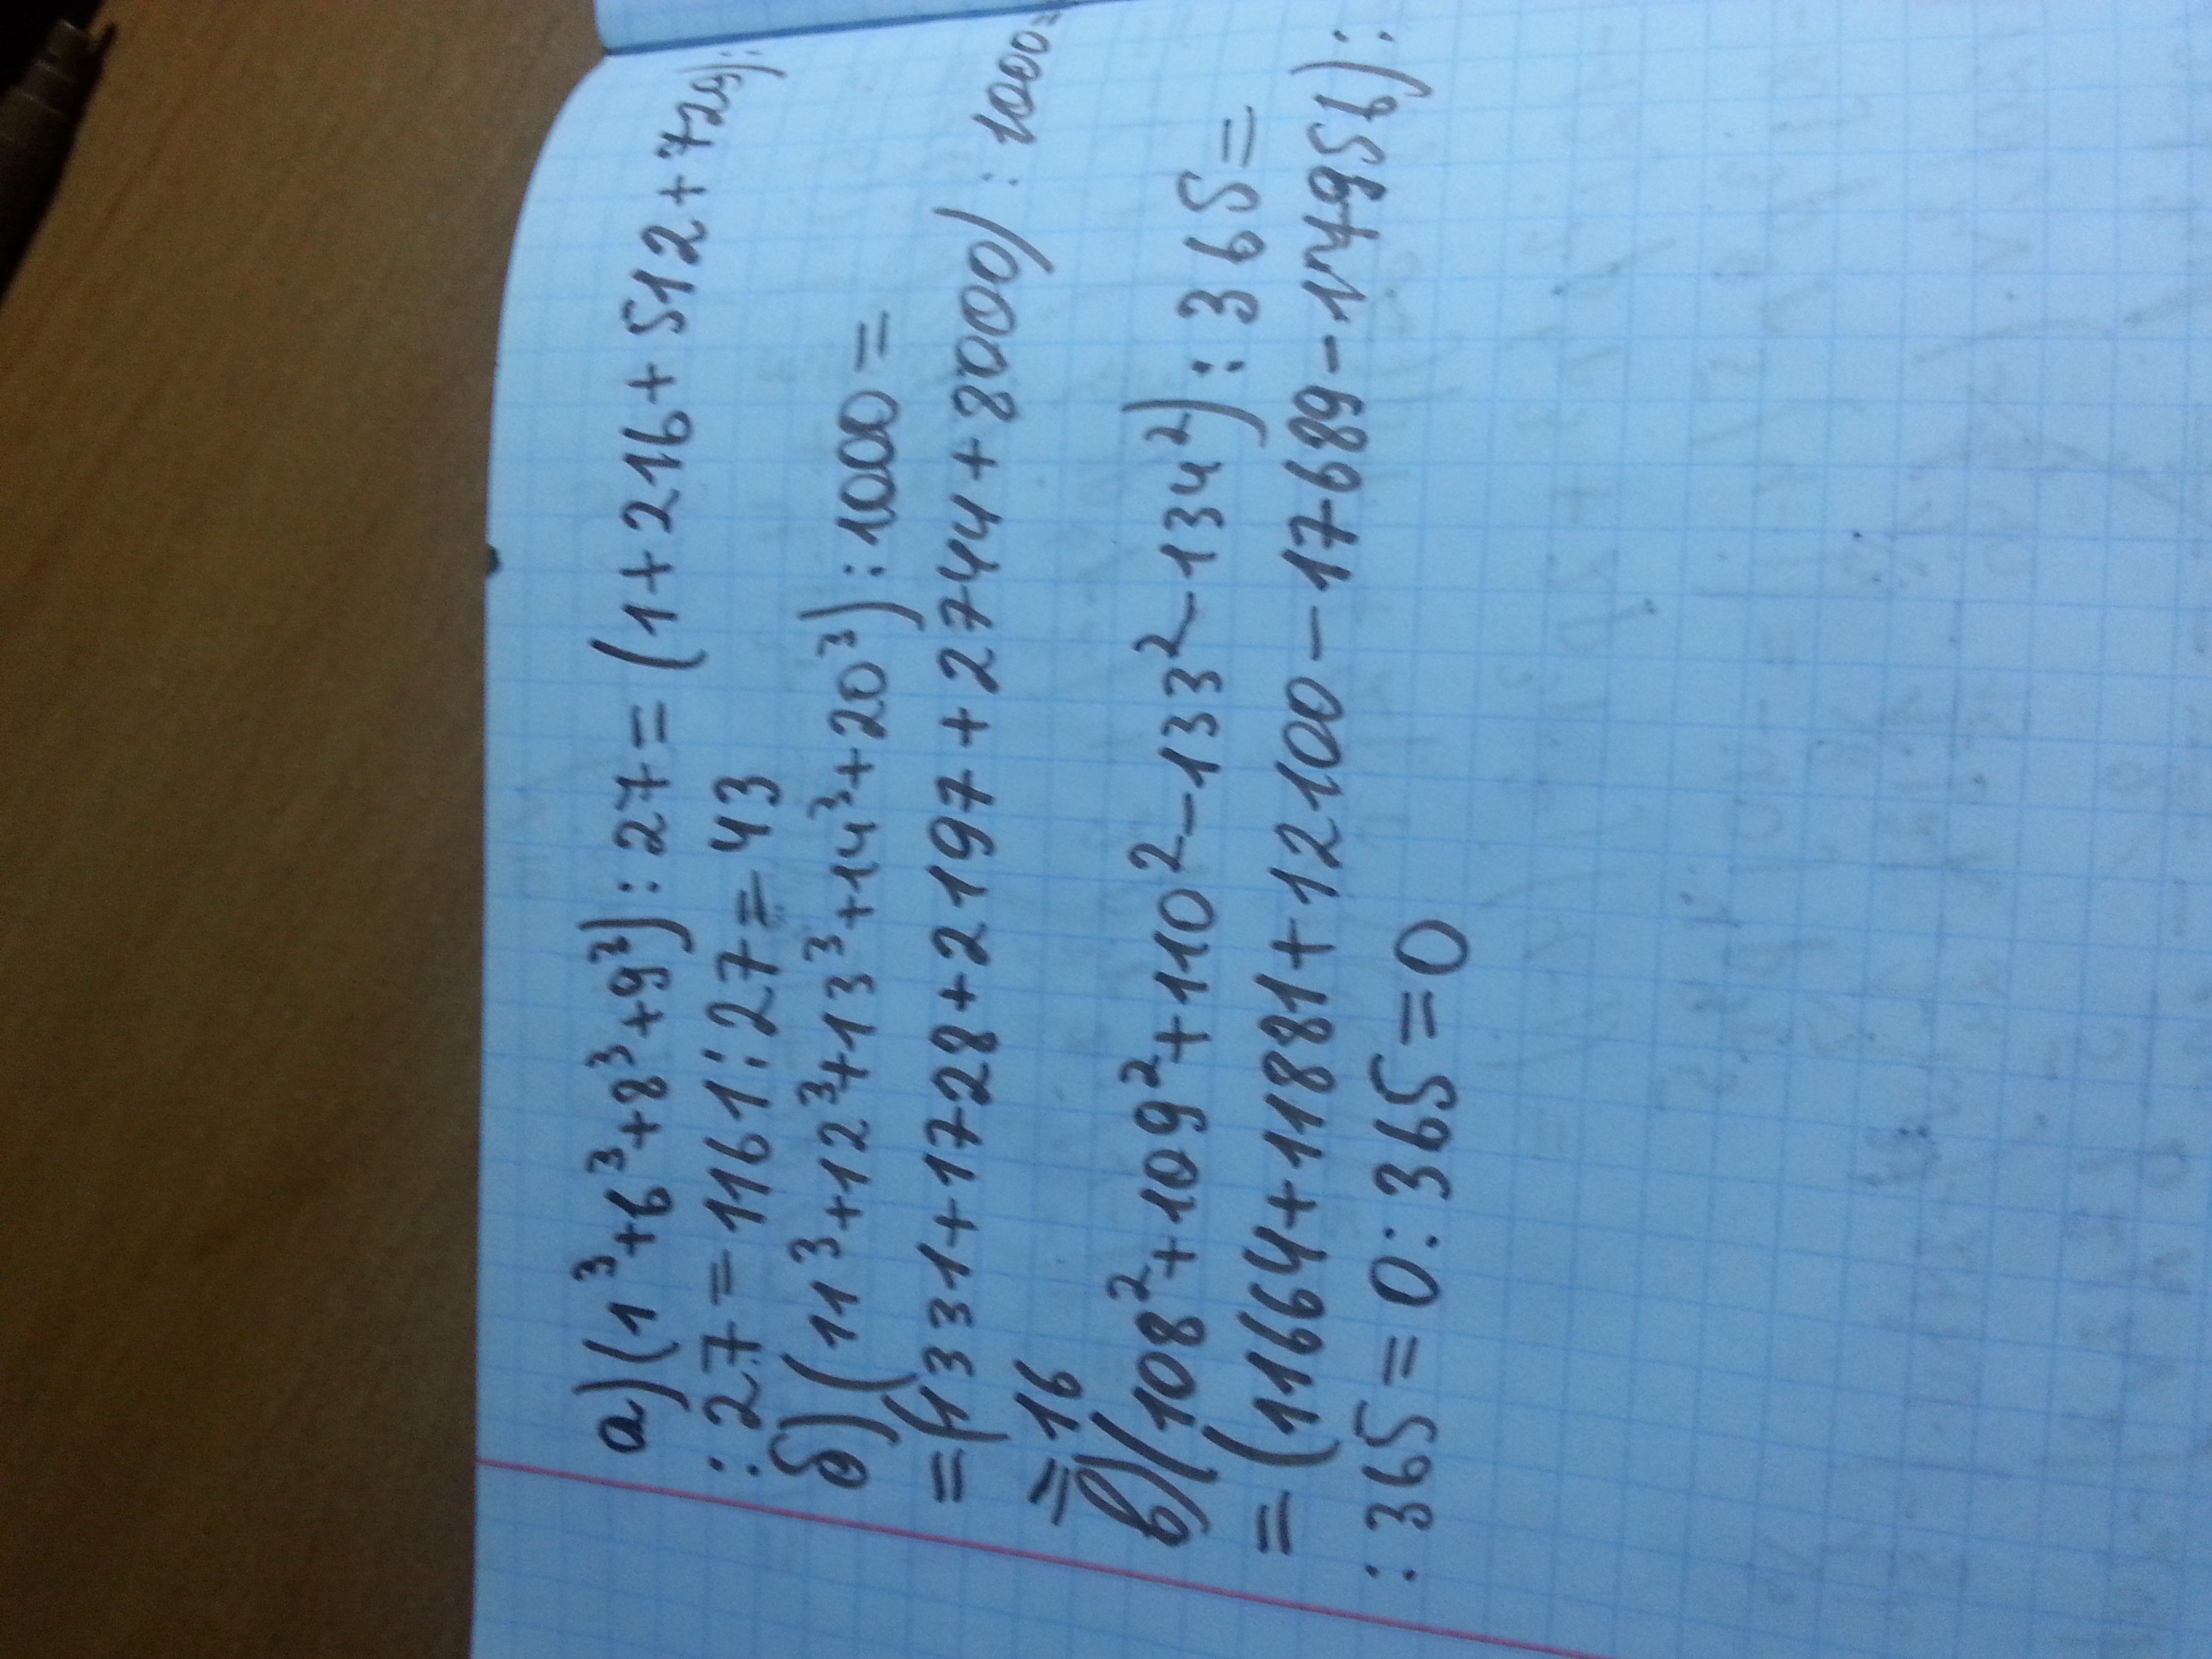 а) (1³+6³+8³+9³):27=(1+216+512+729):
:27=1161:27=43
б) (11³+12³+13³+14³+20³):1000=
=(1331+1728+2197+2744+8000):1000=
=16
в) (108²+109²+110²-133²-134²):365=
=(11664+11881+12100-17689-17956):
:365=0:365=0